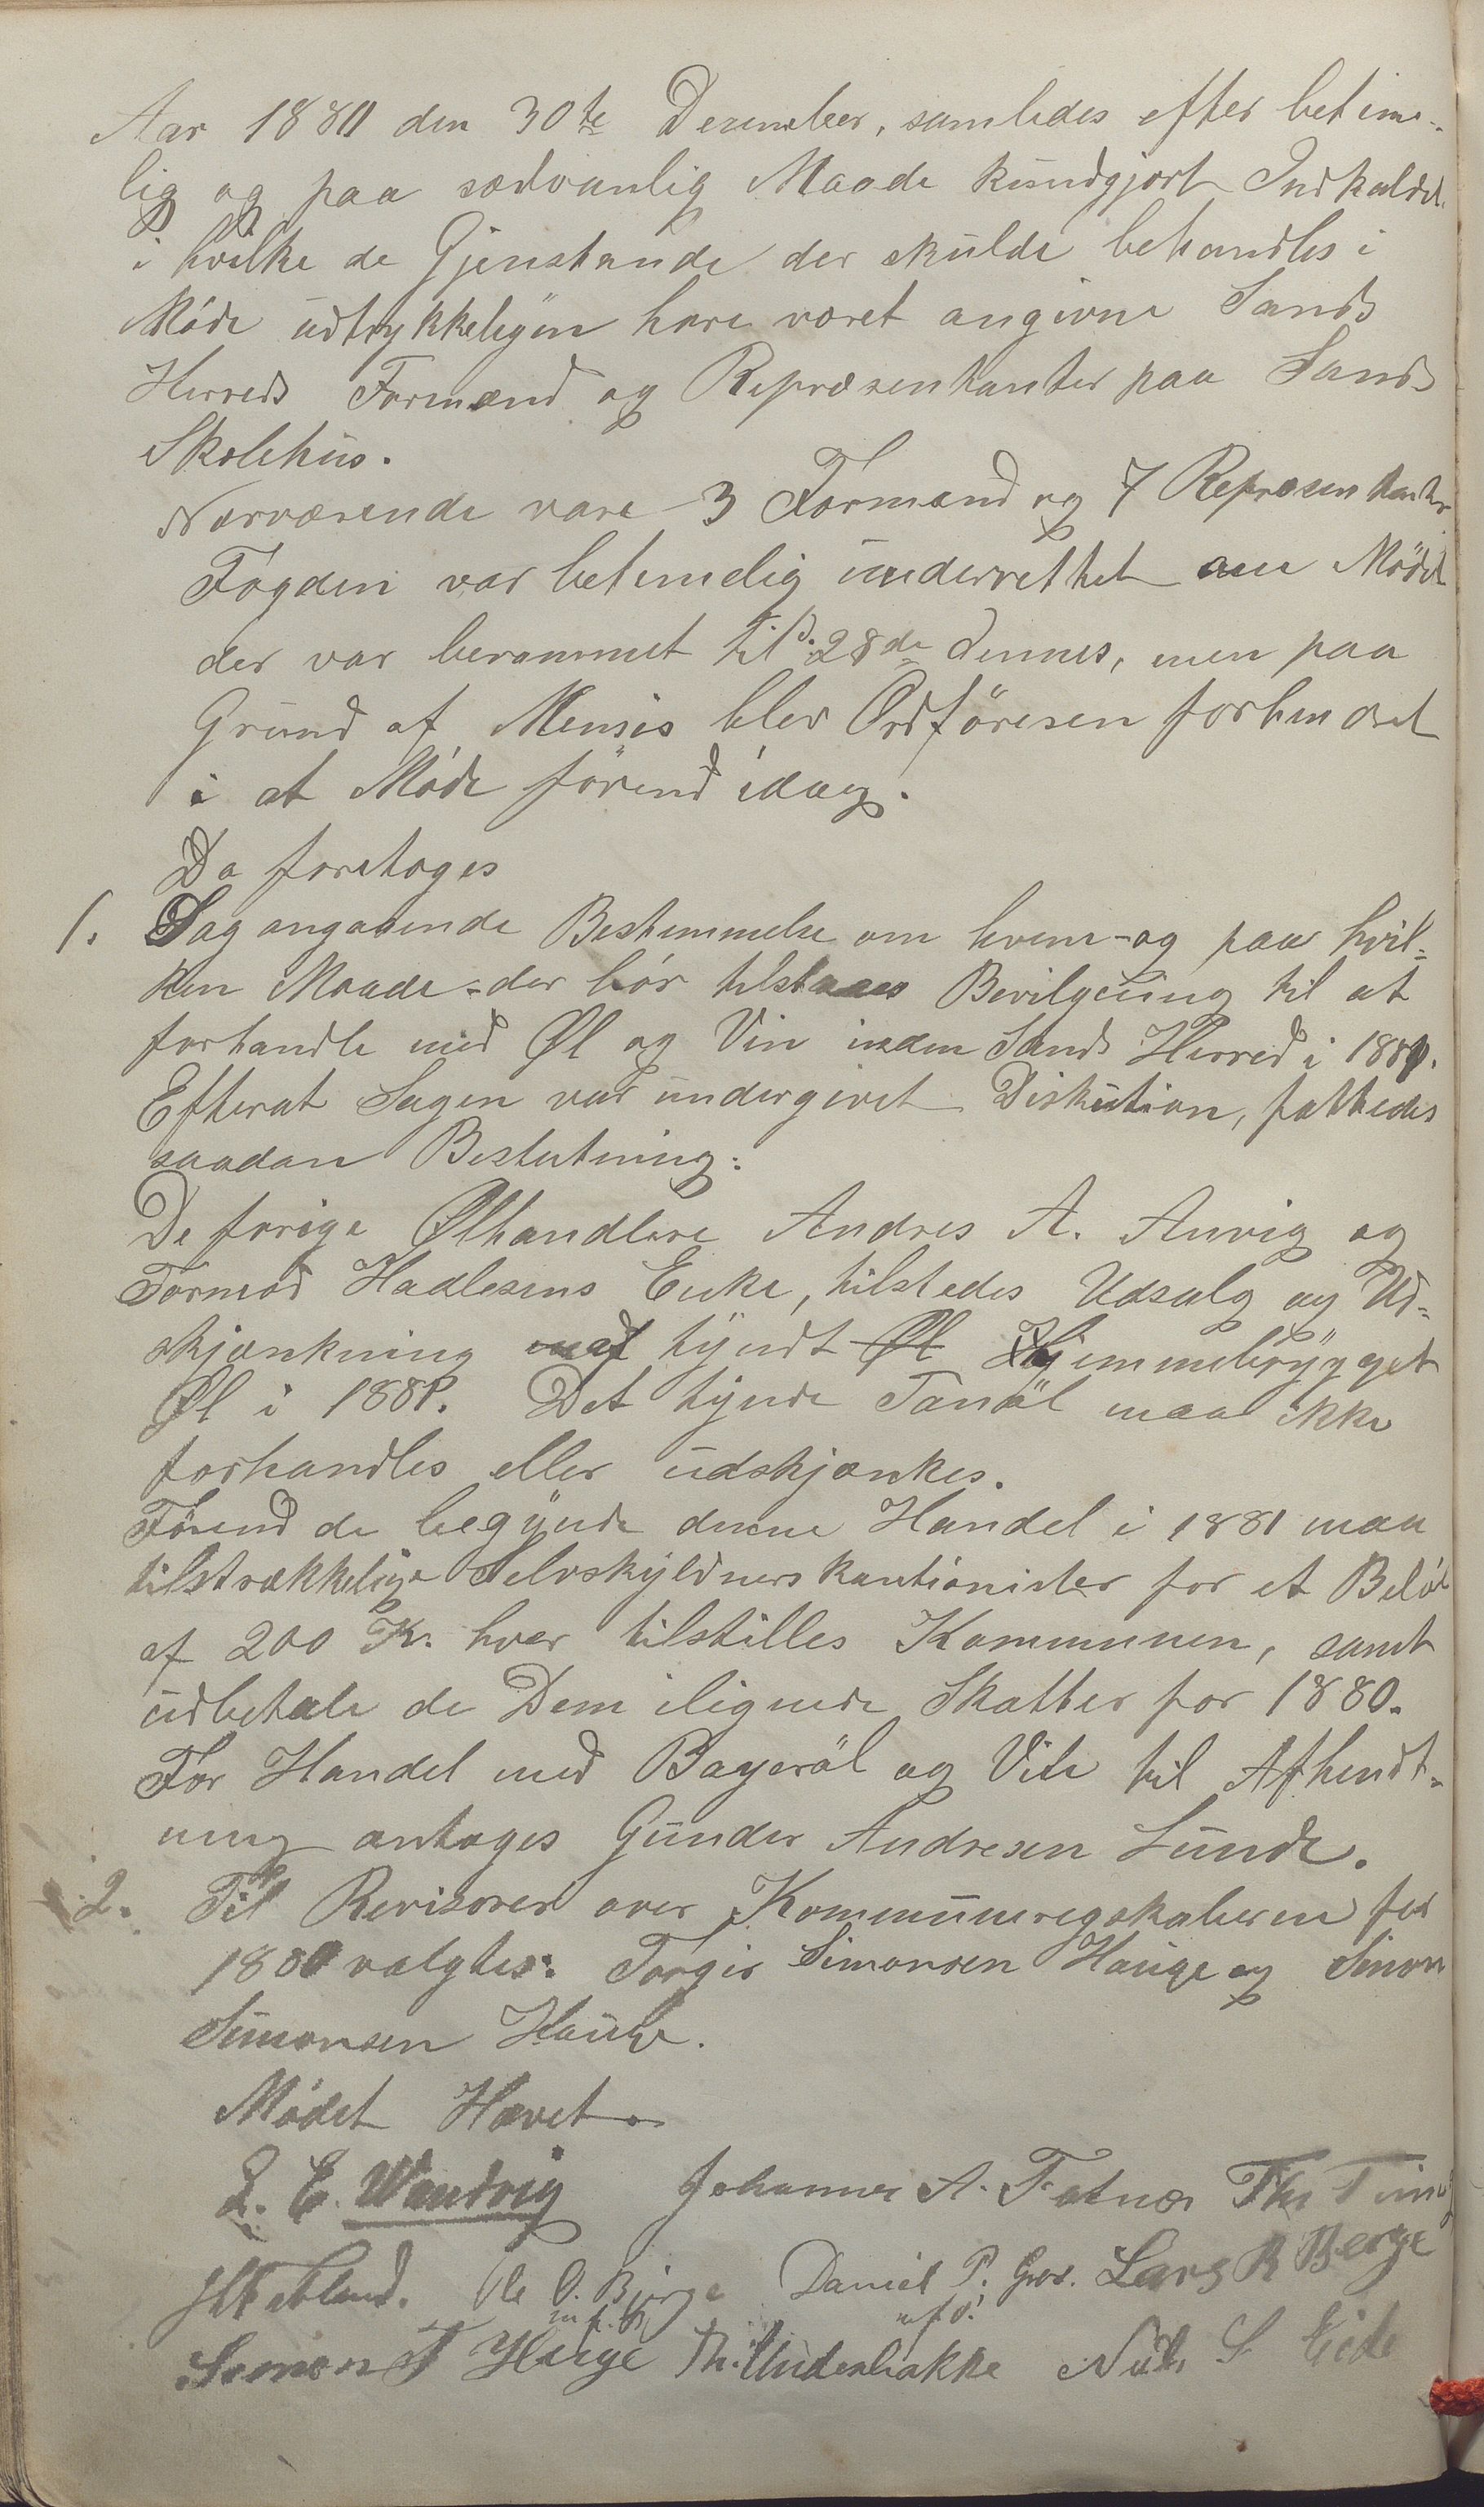 Aar 1880 den 30te Dezember, samledes efter betime-
lig og paa sædvanlig Maade kundgjort Indkaldel.
i hvilke de Gjenstande der skulde behandles i
Møde udtrykkeligen have været angivne Sands
Herreds Formænd og Repræsentanter paa Sands
Skolehus.
Nærværende vare 3 Formænd og 7 Repræsentanter
Fogden var betimelig underrettet om Mødet
der var berammet til d. 28de dennes, men paa
Grund af blev Ordføreren forhindret
i at Møde førend idag.
Da foretoges
1. Sag angaaende Bestemmelse om hvem - og paa hvil-
ken Maade - der bør tilstaaes Bevilgning til at
forhandle med Øl og Vin inden Sands Herred i 1881.
Efterat Sagen var undergivet Diskution, fattedes
saadan Beslutning:
De forige Ølhandlere Andres A. Anvig og
Tormod Hadlesens Enke, tilstedes Udsalg og Ud-
skjænkning af tyndt Øl Hjemmebrygget
Øl i 1881. Det tynde Tanöl maa ikke
forhandles eller udskjænkes.
Førend de begynde denne Handel i 1881 maa
tilstrækkelige Selvskyldnerskautionister for et Beløb
af 200 Kr. hver tilstilles Kommunen, samt
udbetale de Dem ilignede Skatter for 1880.
For Handel med Bayeröl og Vin til Afhendt-
ning antoges Gunder Andresen Lunde.
2. Til Revisorer over Kommuneregskaberne for
1880 valgtes: Torgis Simonsen Hauge og Simon
Simonsen Hauge.
Mødet Hævet
L. E. Wandvig Johannes A. Fatnes Ths
Ole O. Bjørge Daniel P. Lars R Berge
m f. P. m f P.
Simon T Hauge Th. Underbakke S. Eide